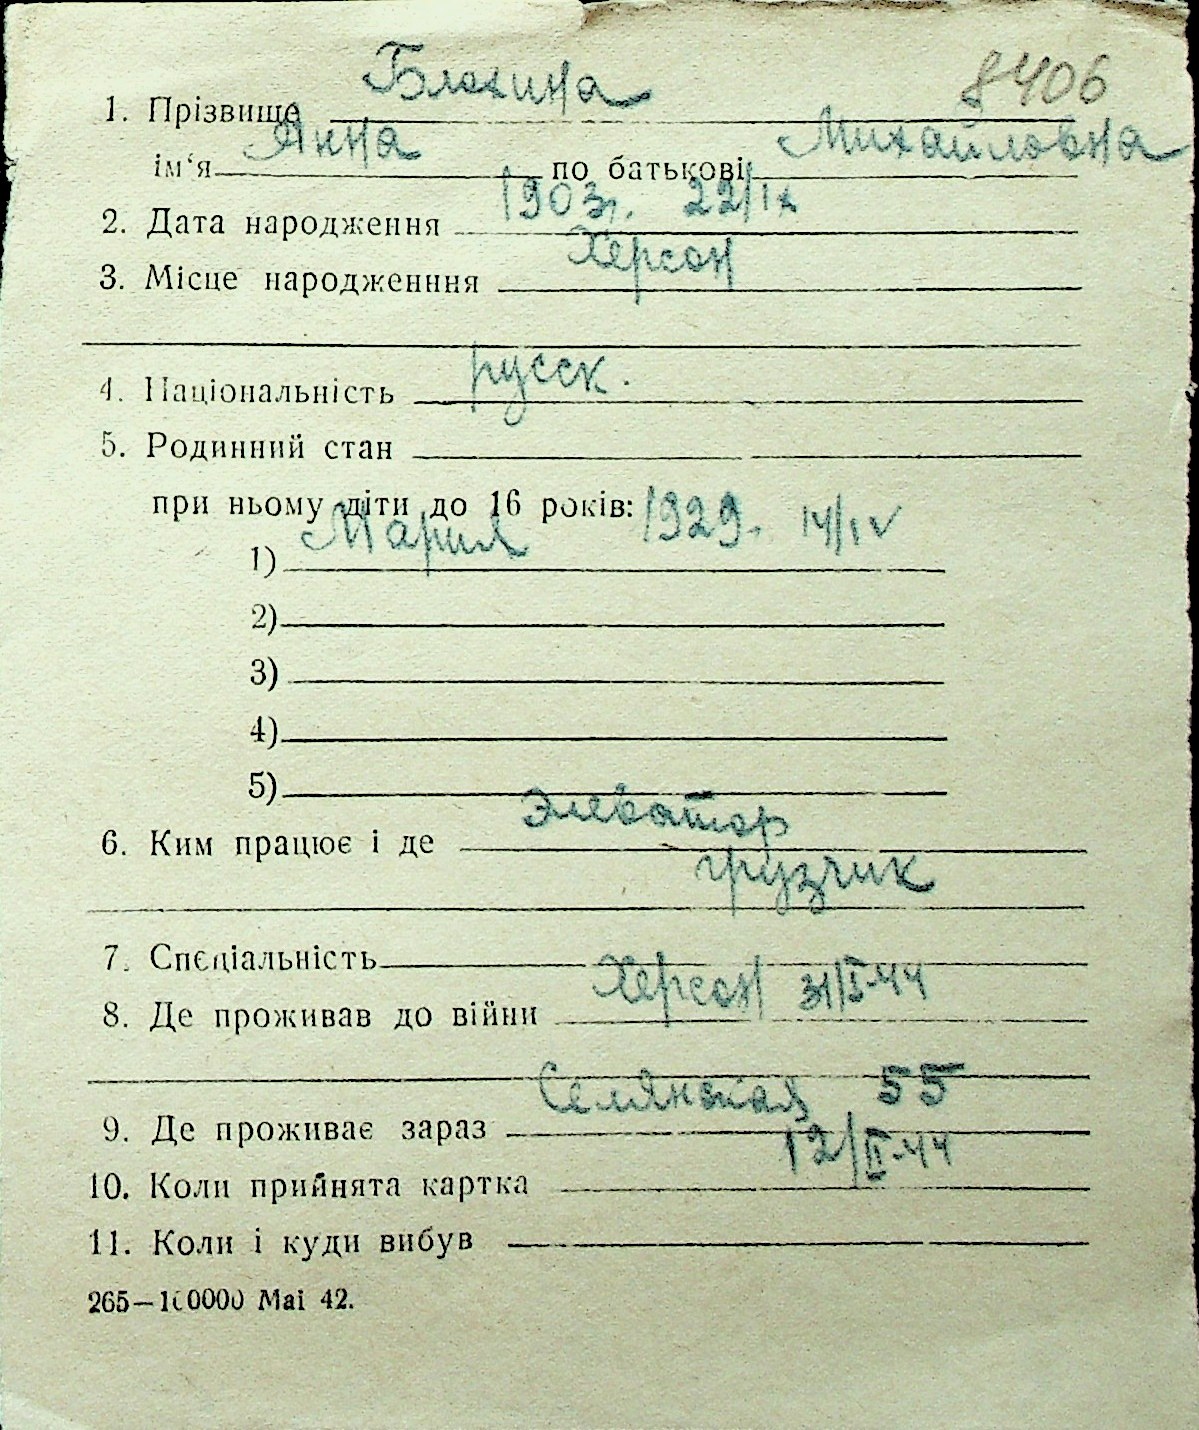 8406
Блохина
1. Прізвище
Анна Михайловна
ім‘я по батькові
1903г. 22/IX
2. Дата народження
Херсон
3. Місце народженння
русск.
4. Національність
5. Родинний стан
при ньому діти до 16 років: 1929. 14/IV
Мария
1)
2)
3)
4)
5)
Элеватор
6. Ким працює і де
грузчик
7. Спеціальність
Херсон 31/I-44
8. Де проживав до війни
Семянская 55
9. Де проживає зараз
12/II-44
10. Коли прийнята картка
11. Коли і куди вибув
265—100000 Mai 42.